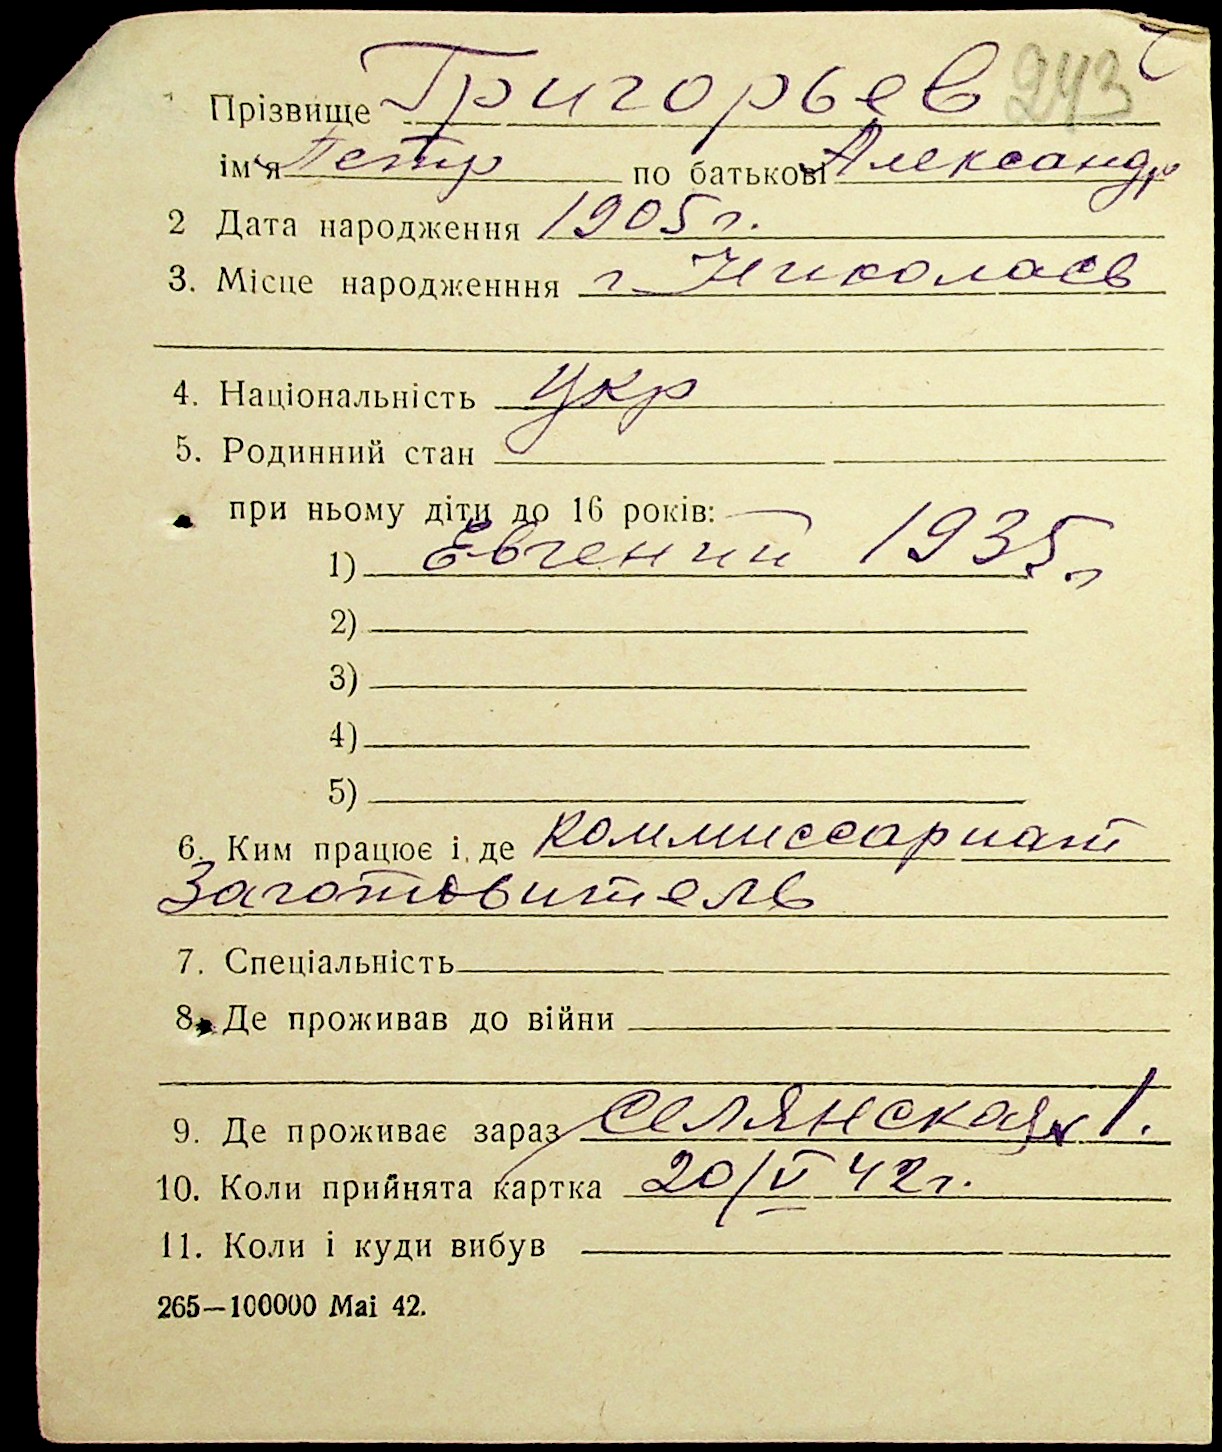 Прізвище Григорьев 243
ім'я Петр по батькові Александр
2 Дата народження 1905 г.
3. Місце народженння г. Николаев
4. Національність Укр
5. Родинний стан
при ньому діти до 16 років:
1) Евгений 1935 г
2)
3)
4)
5)
6. Ким працює і де Коммиссариат
Заготовитель
7. Спеціальність
8. Де проживав до війни
9. Де проживає зараз Селянская 1.
10. Коли прийнята картка 20/V 42 г.
11. Коли і куди вибув
265—100000 Mai 42.